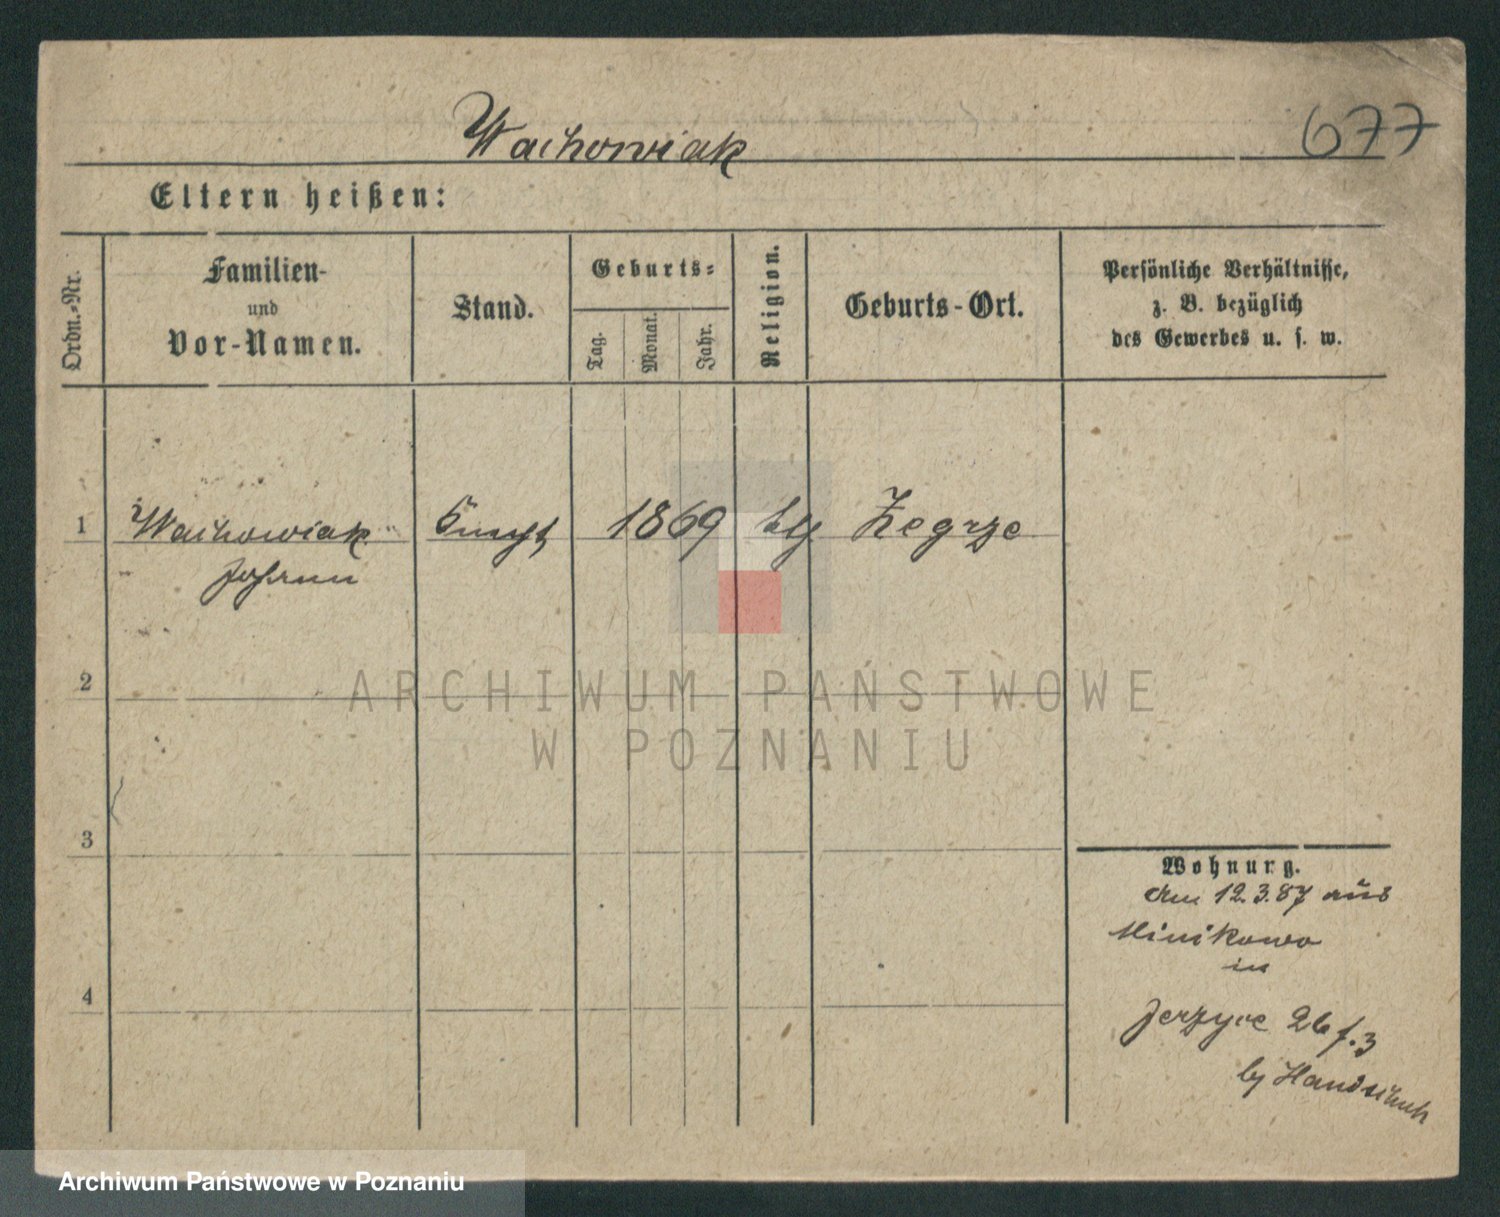 Wachowiak
677
Eltern heißen:
Ordn.-Nr.
Familien-
und
Vor-Namen.
Stand.
Geburts-
Tag.
Monat.
Jahr.
Religion.
Geburts-Ort.
Persönliche Verhältnisse,
z. B. bezüglich
des Gewerbes u. s. w.
1 Wachowiak Knecht 1869 ktg Zegrze
Johann
2
ARCHIWUM PAŃSTWOWE
W POZNANIU
3
4
Wohnung.
Am 12.3.87 aus
Minikowo
in
Jerzyce 26 f. 3
by Handschuh
Archiwum Państwowe w Poznaniu